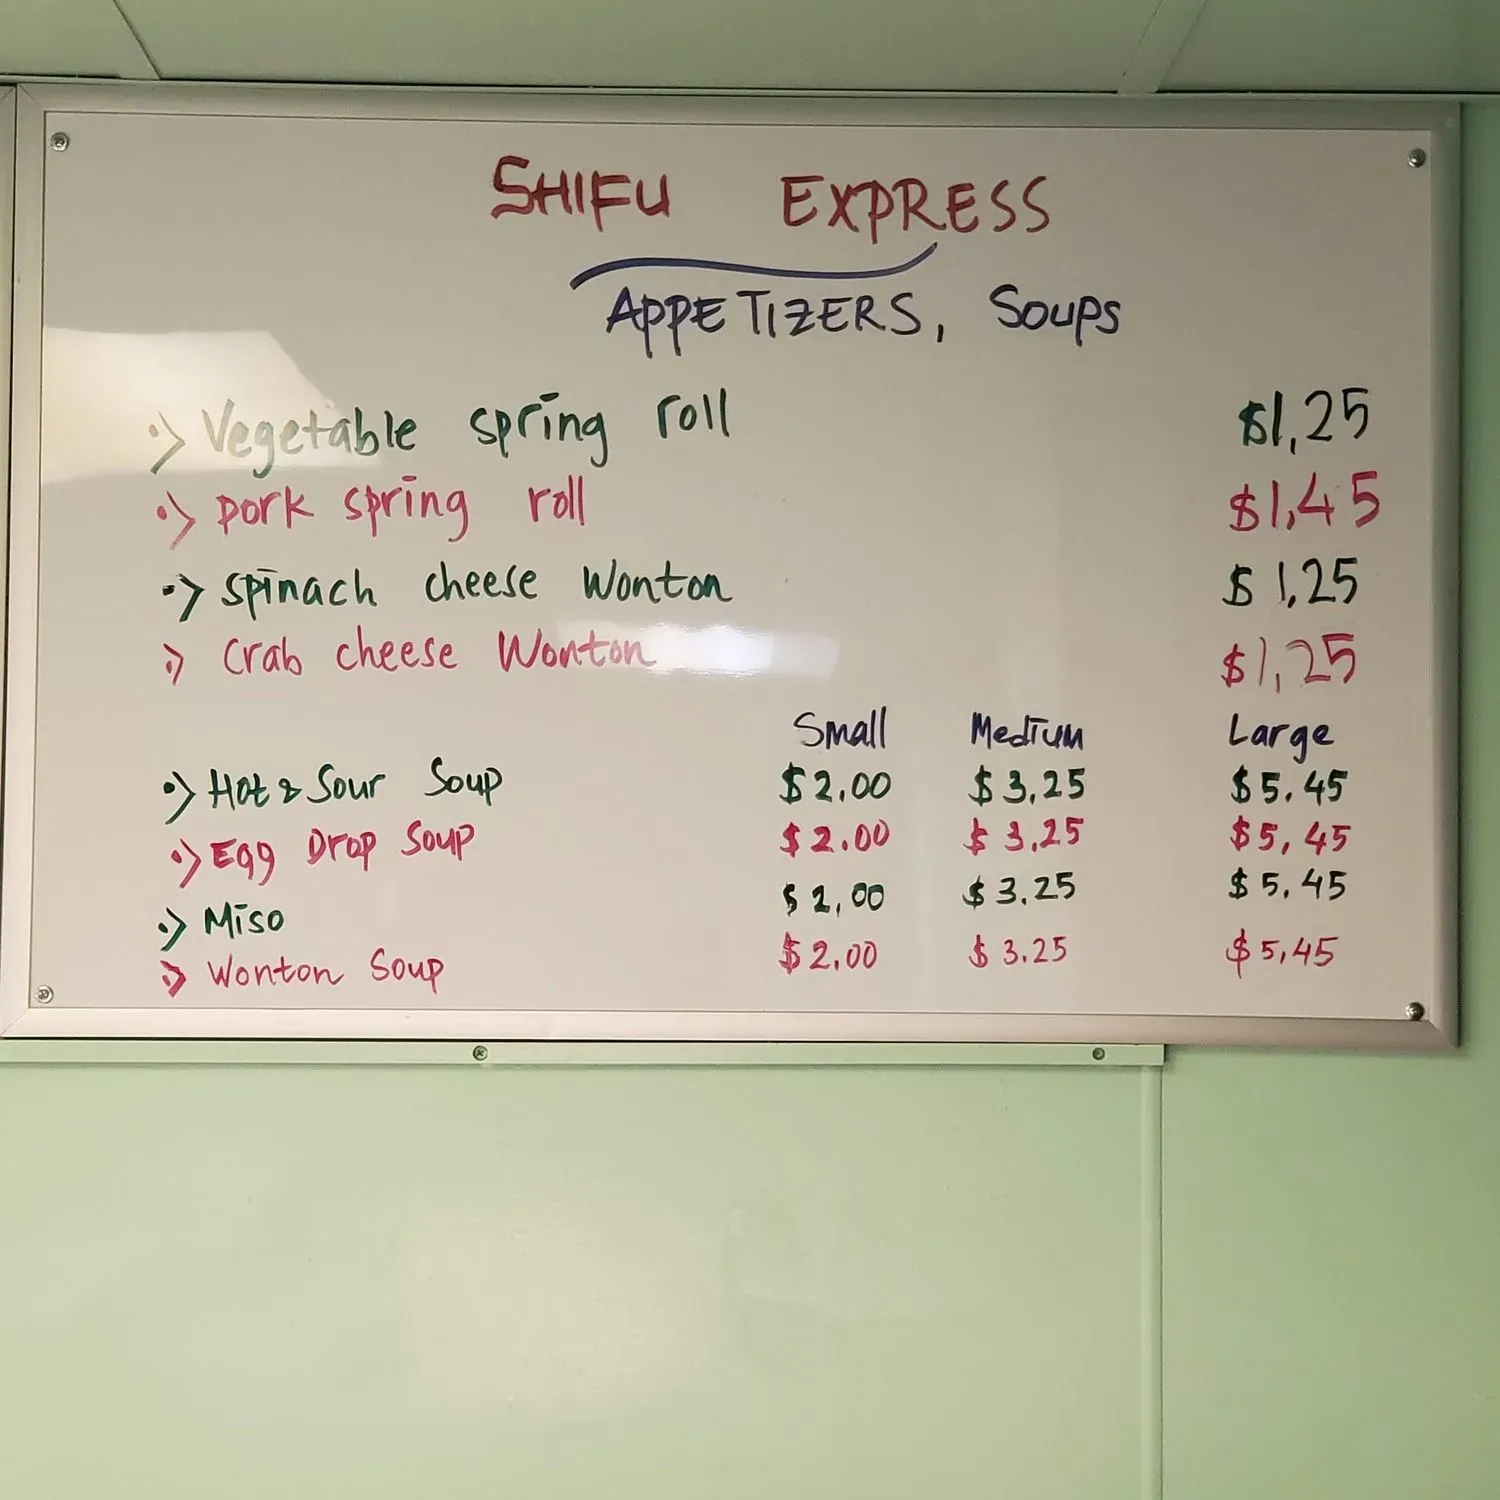 SHIFU EXPRESS
APPETIZERS, Soups
·> Vegetable spring roll $1,25
·> pork spring roll $1,45
·> spinach cheese Wonton $1,25
·> Crab cheese Wonton $1,25
Small Medium Large
·> Hot & Sour Soup $2.00 $3,25 $5.45
·> Egg Drop Soup $2.00 $3,25 $5,45
·> Miso $2,00 $3.25 $5.45
·> Wonton Soup $2.00 $3.25 $5,45